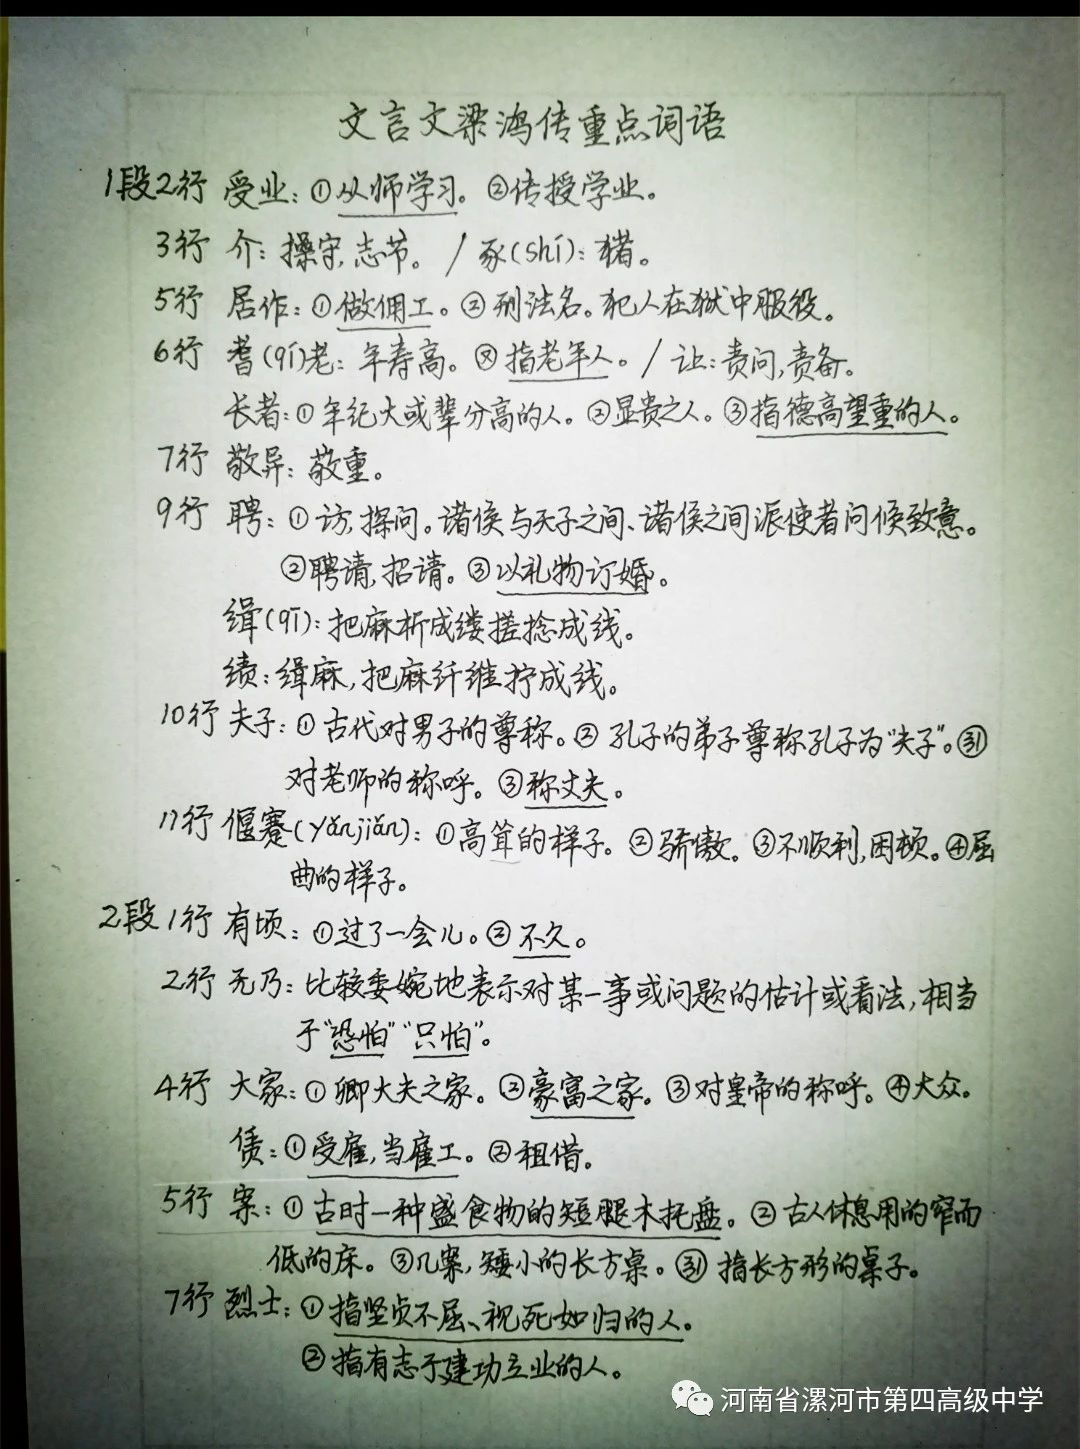 文言文梁鸿传重点词语
1段2行 受业：①从师学习。②传授学业。
3行 介：操守，志节。/ 豕(shǐ)：猪。
5行 居作：①做佣工。②刑法名。犯人在狱中服役。
6行 耆(qí)老：年寿高。㊁指老年人。/ 让：责问，责备。
长者：①年纪大或辈分高的人。②显贵之人。③指德高望重的人。
7行 敬异：敬重。
9行 聘：①访，探问。诸侯与天子之间、诸侯之间派使者问候致意。
②聘请，招请。③以礼物订婚。
缉(qī)：把麻析成缕搓捻成线。
绩：缉麻，把麻纤维拧成线。
10行 夫子：①古代对男子的尊称。②孔子的弟子尊称孔子为“夫子”。㊂
对老师的称呼。③称丈夫。
11行 偃蹇(yǎnjiǎn)：①高耸的样子。②骄傲。③不顺利，困顿。④屈
曲的样子。
2段1行 有顷：①过了一会儿。②不久。
2行 无乃：比较委婉地表示对某一事或问题的估计或看法，相当
于“恐怕”“只怕”。
4行 大家：①卿大夫之家。②豪富之家。③对皇帝的称呼。④大众。
赁：①受雇，当雇工。②租借。
5行 案：①古时一种盛食物的短腿木托盘。②古人休息用的窄而
低的床。③几案，矮小的长方桌。㊂指长方形的桌子。
7行 烈士：①指坚贞不屈、视死如归的人。
②指有志于建功立业的人。
河南省漯河市第四高级中学